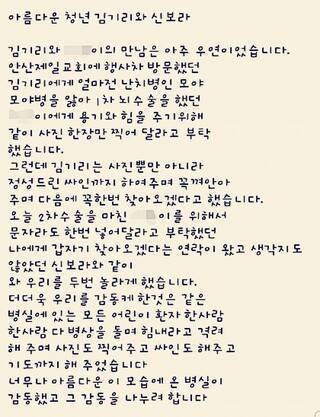 아름다운 청년 김기리와 신보라
김기리와 이의 만남은 아주 우연이었습니다.
안산제일교회에 행사차 방문했던
김기리에게 얼마전 난치병인 모야
모야병을 앓아 1차 뇌수술을 했던
이에게 용기와 힘을 주기위해
같이 사진 한장만 찍어 달라고 부탁
했습니다.
그런데 김기리는 사진뿐만 아니라
정성드린 싸인까지 하여주며 꼭껴안아
주며 다음에 꼭한번 찾아오겠다고 했습니다.
오늘 2차수술을 마친 이를 위해서
문자라도 한번 넣어달라고 부탁했던
나에게 갑자기 찾아오겠다는 연락이 왔고 생각지도
않았던 신보라와 같이
와 우리를 두번 놀라게 했습니다.
더더욱 우리를 감동케 한것은 같은
병실에 있는 모든 어린이 환자 한사람
한사람 다 병상을 돌며 힘내라고 격려
해 주며 사진도 찍어주고 싸인도 해주고
기도까지 해 주었습니다
너무나 아름다운 이 모습에 온 병실이
감동했고 그 감동을 나누려 합니다